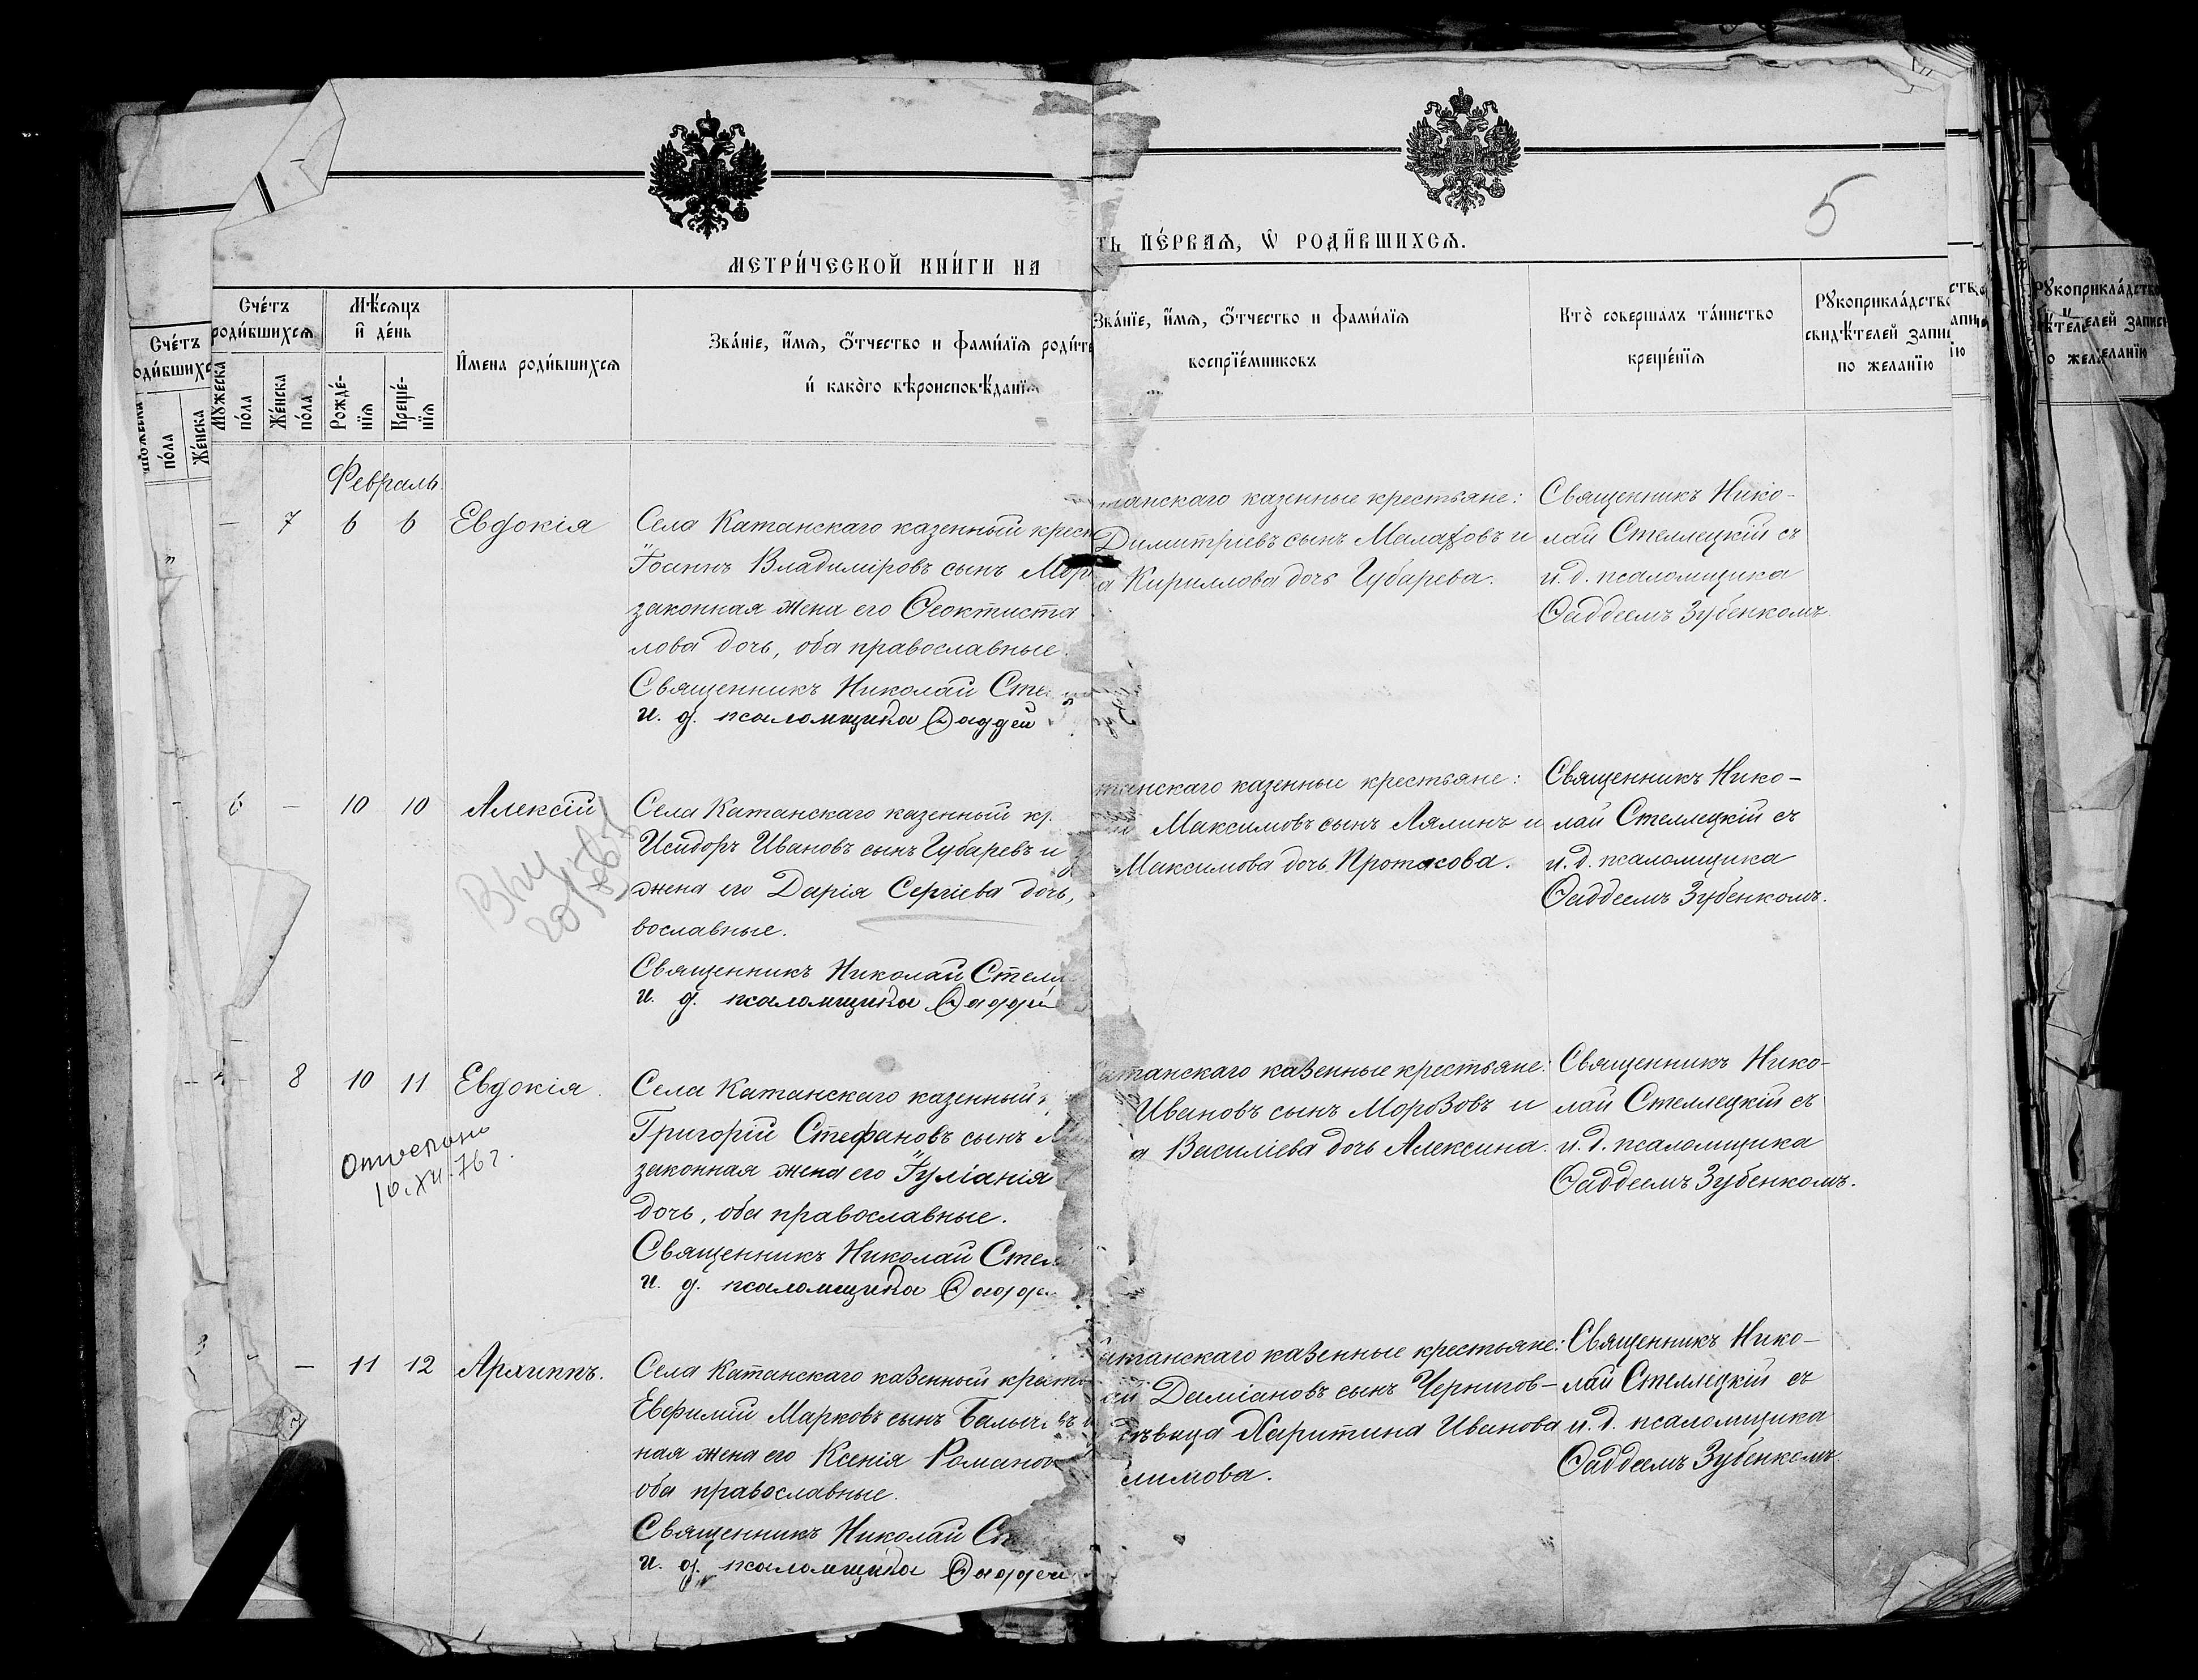 5
МЕТРИ́ЧЕСКОЙ КНИ́ГИ НА
ТЬ ПЕ́РВАѦ, Ѡ҆ РОДИ́ВШИХСѦ.
Сче́тъ роди́вшихсѧ
Мꙋ́жеска по́ла
Же́нска по́ла
Мѣ́сѧцъ и҆ де́нь
Рожде́-нїѧ
Креще́-нїѧ
И҆мена роди́вшихсѧ
Зва́нїе, и҆́мѧ, ѻ҆́тчество и фами́лїѧ роди́те
и҆ како́гѡ вѣроисповѣ́данїѧ
Зва́нїе, и҆́мѧ, ѻ҆́тчество и фами́лїѧ
воспрїе́мниковъ
Кто̀ соверша́лъ та́инство
креще́нїѧ
Рꙋкоприкла́дство
свидѣ́телей запи
по жела́нїю
Февраль.
— 7 6 6 Евдокія
Села Катанскаго казенный крест
Іоаннъ Владиміровъ сынъ Мор
законная жена его Ѳеоктиста
лова дочь, оба православные.
Священникъ Николай Сте
и. д. псаломщика Ѳаддей
танскаго казенные крестьяне:
Димитріевъ сынъ Малаховъ и
а Кириллова дочь Губарева.
Священникъ Нико-
лай Стеллецкій съ
и. д. псаломщика
Ѳаддеемъ Зубенкомъ.
6 — 10 10 Алексій
Села Катанскаго казенный кр
Исидоръ Ивановъ сынъ Губаревъ и
жена его Дарія Сергіева дочь,
вославные.
Священникъ Николай Стелл
и. д. псаломщика Ѳаддей
танскаго казенные крестьяне:
Максимовъ сынъ Лялинъ и
Максимова дочь Протасова.
Священникъ Нико-
лай Стеллецкій съ
и. д. псаломщика
Ѳаддеемъ Зубенкомъ.
8 10 11 Евдокія.
Отвепано
10.XII.76 г.
Села Катанскаго казенный к
Григорій Стефановъ сынъ М
законная жена его Іуліанія
дочь, оба православные.
Священникъ Николай Стел
и. д. псаломщика Ѳадде
атанскаго казенные крестьяне:
Ивановъ сынъ Морозовъ и
а Василіева дочь Алексина.
Священникъ Нико-
лай Стеллецкій съ
и. д. псаломщика
Ѳаддеемъ Зубенкомъ.
7 — 11 12 Архиппъ.
Села Катанскаго казенный крестья
Евфимій Марковъ сынъ Балыч въ
ная жена его Ксенія Романов
оба православные.
Священникъ Николай Ст
и. д. псаломщика Ѳаддей
атанскаго казенные крестьяне:
ей Даміановъ сынъ Чернигов-
дѣвица Харитина Иванова
лимова.
Священникъ Нико-
лай Стеллецкій съ
и. д. псаломщика
Ѳаддеемъ Зубенкомъ